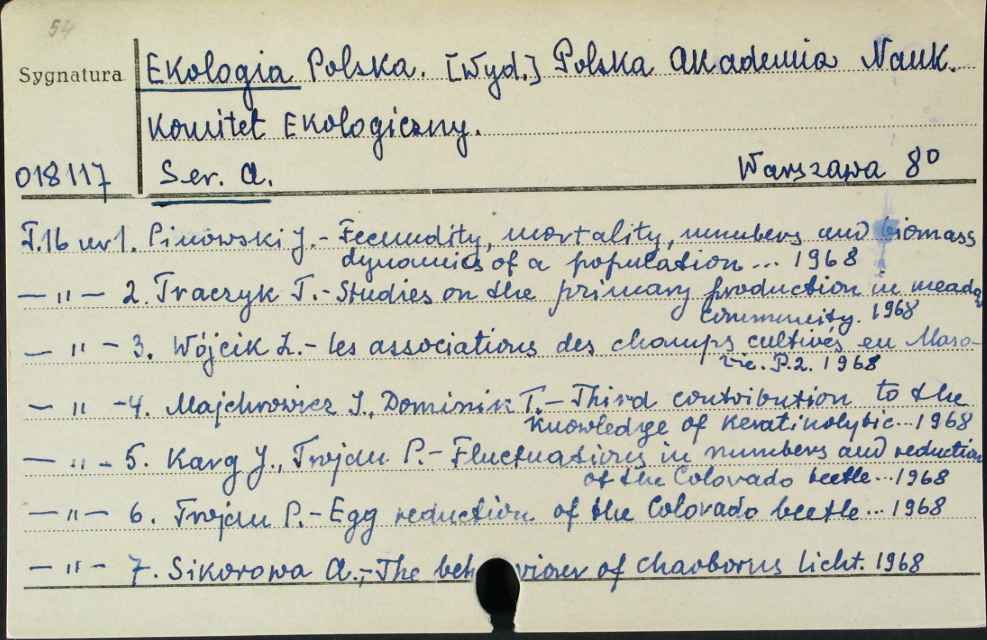 54
Sygnatura Ekologia Polska. [Wyd.] Polska Akademia Nauk.
Komitet Ekologiczny.
018117 Ser. A.
Warszawa 8°
T.16 nr 1. Pinowski J. - Fecundity, mortality, numbers and biomass
dynamics of a population ... 1968
— " — 2. Traczyk T. - Studies on the primary production in meadow
community. 1968
— " — 3. Wójcik Z. - Les associations des champs cultivés en Maso-
vie. P.2. 1968
— " — 4. Majchrowicz I., Dominik T. - Third contribution to the
knowledge of keratinolytic ... 1968
— " — 5. Karg J., Trojan P. - Fluctuations in numbers and reduction
of the Colorado beetle ... 1968
— " — 6. Trojan P. - Egg reduction of the Colorado beetle ... 1968
— " — 7. Sikorowa A. - The behaviour of chaoborus licht. 1968